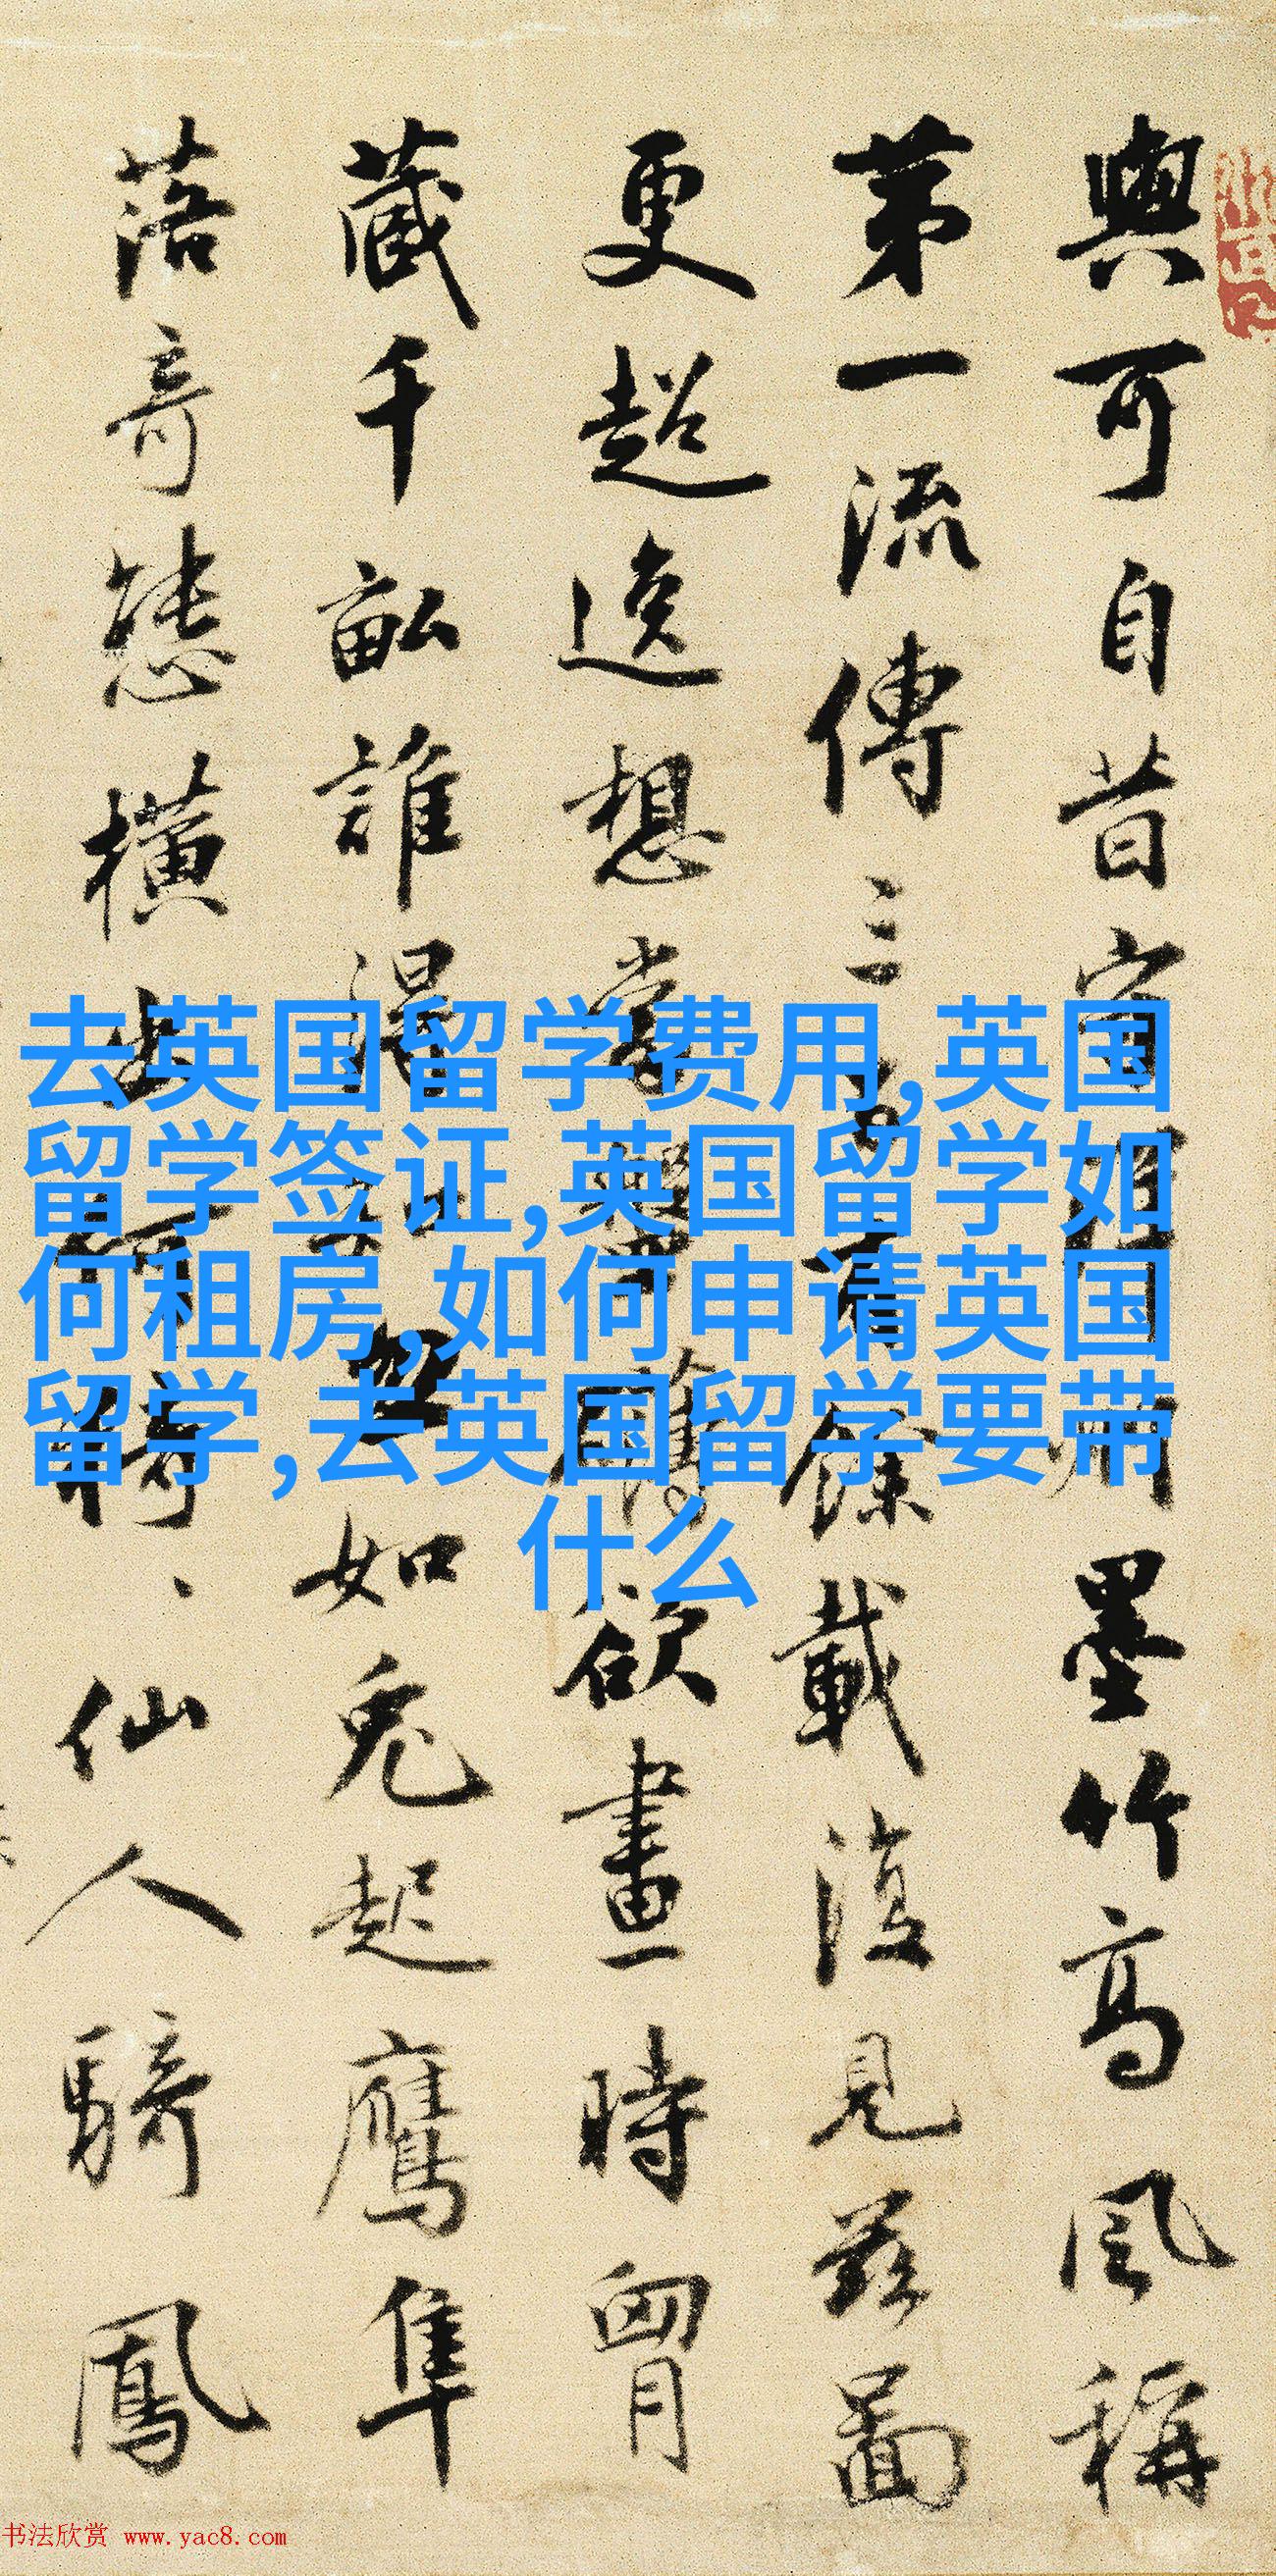 與可自昔守州墨竹高風稱
苐一流傳三百有餘載復見茲圖
更超逸想當欲畫時胷
藏千畝誰得知忽如兔起鷹隼
落奇態橫出何猗、仙人騎鳳
去英国留学费用,英国
留学签证,英国留学如
何租房,如何申请英国
留学,去英国留学要带
什么
书法欣赏 www.yac8.com